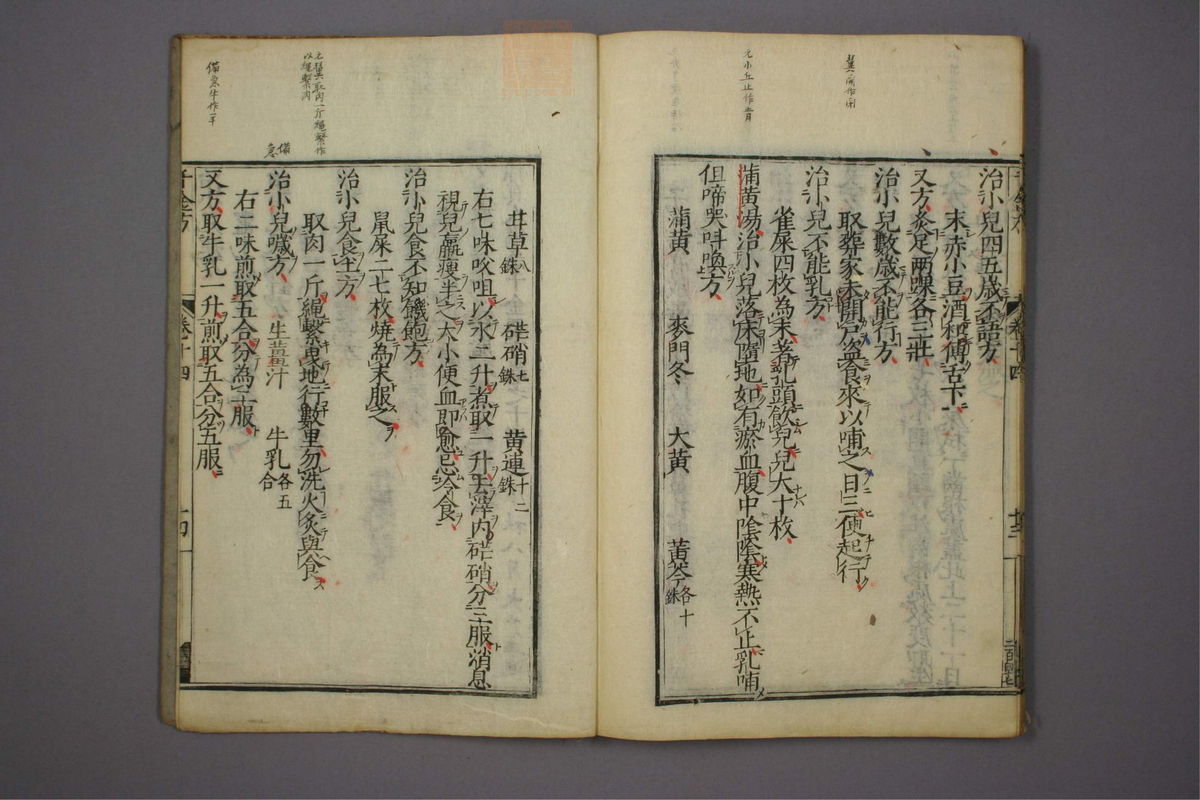 治小兒四五歲不語方
末赤小豆酒和傅舌下
又方灸足兩踝各三壯
治小兒數歲不能行方
取葬家未開戸盗食來以哺之日三便起行
治小兒不能乳方
雀屎四枚為末著乳頭飲兒兒大十枚
蒲黃湯治小兒落床墮地如有瘀血腹中陰陰寒熱不止乳哺
但啼哭呌喚方
蒲黃 麥門冬 大黃 黃芩各十銖
甘草八銖 硭硝七銖 黃連十二銖
右七味㕮咀以水二升煮取一升去滓內硭硝分三服消息
視兒羸瘦半之大小便血即愈忌冷食
治小兒食不知饑飽方
鼠屎二七枚燒為末服之
治小兒食土方
取肉一斤繩繫曳地行數里勿洗火炙與食
備急
治小兒噦方 生薑汁 牛乳各五合
右二味煎取五合分為二服
又方取牛乳一升煎取五合分五服
千金方 卷十四